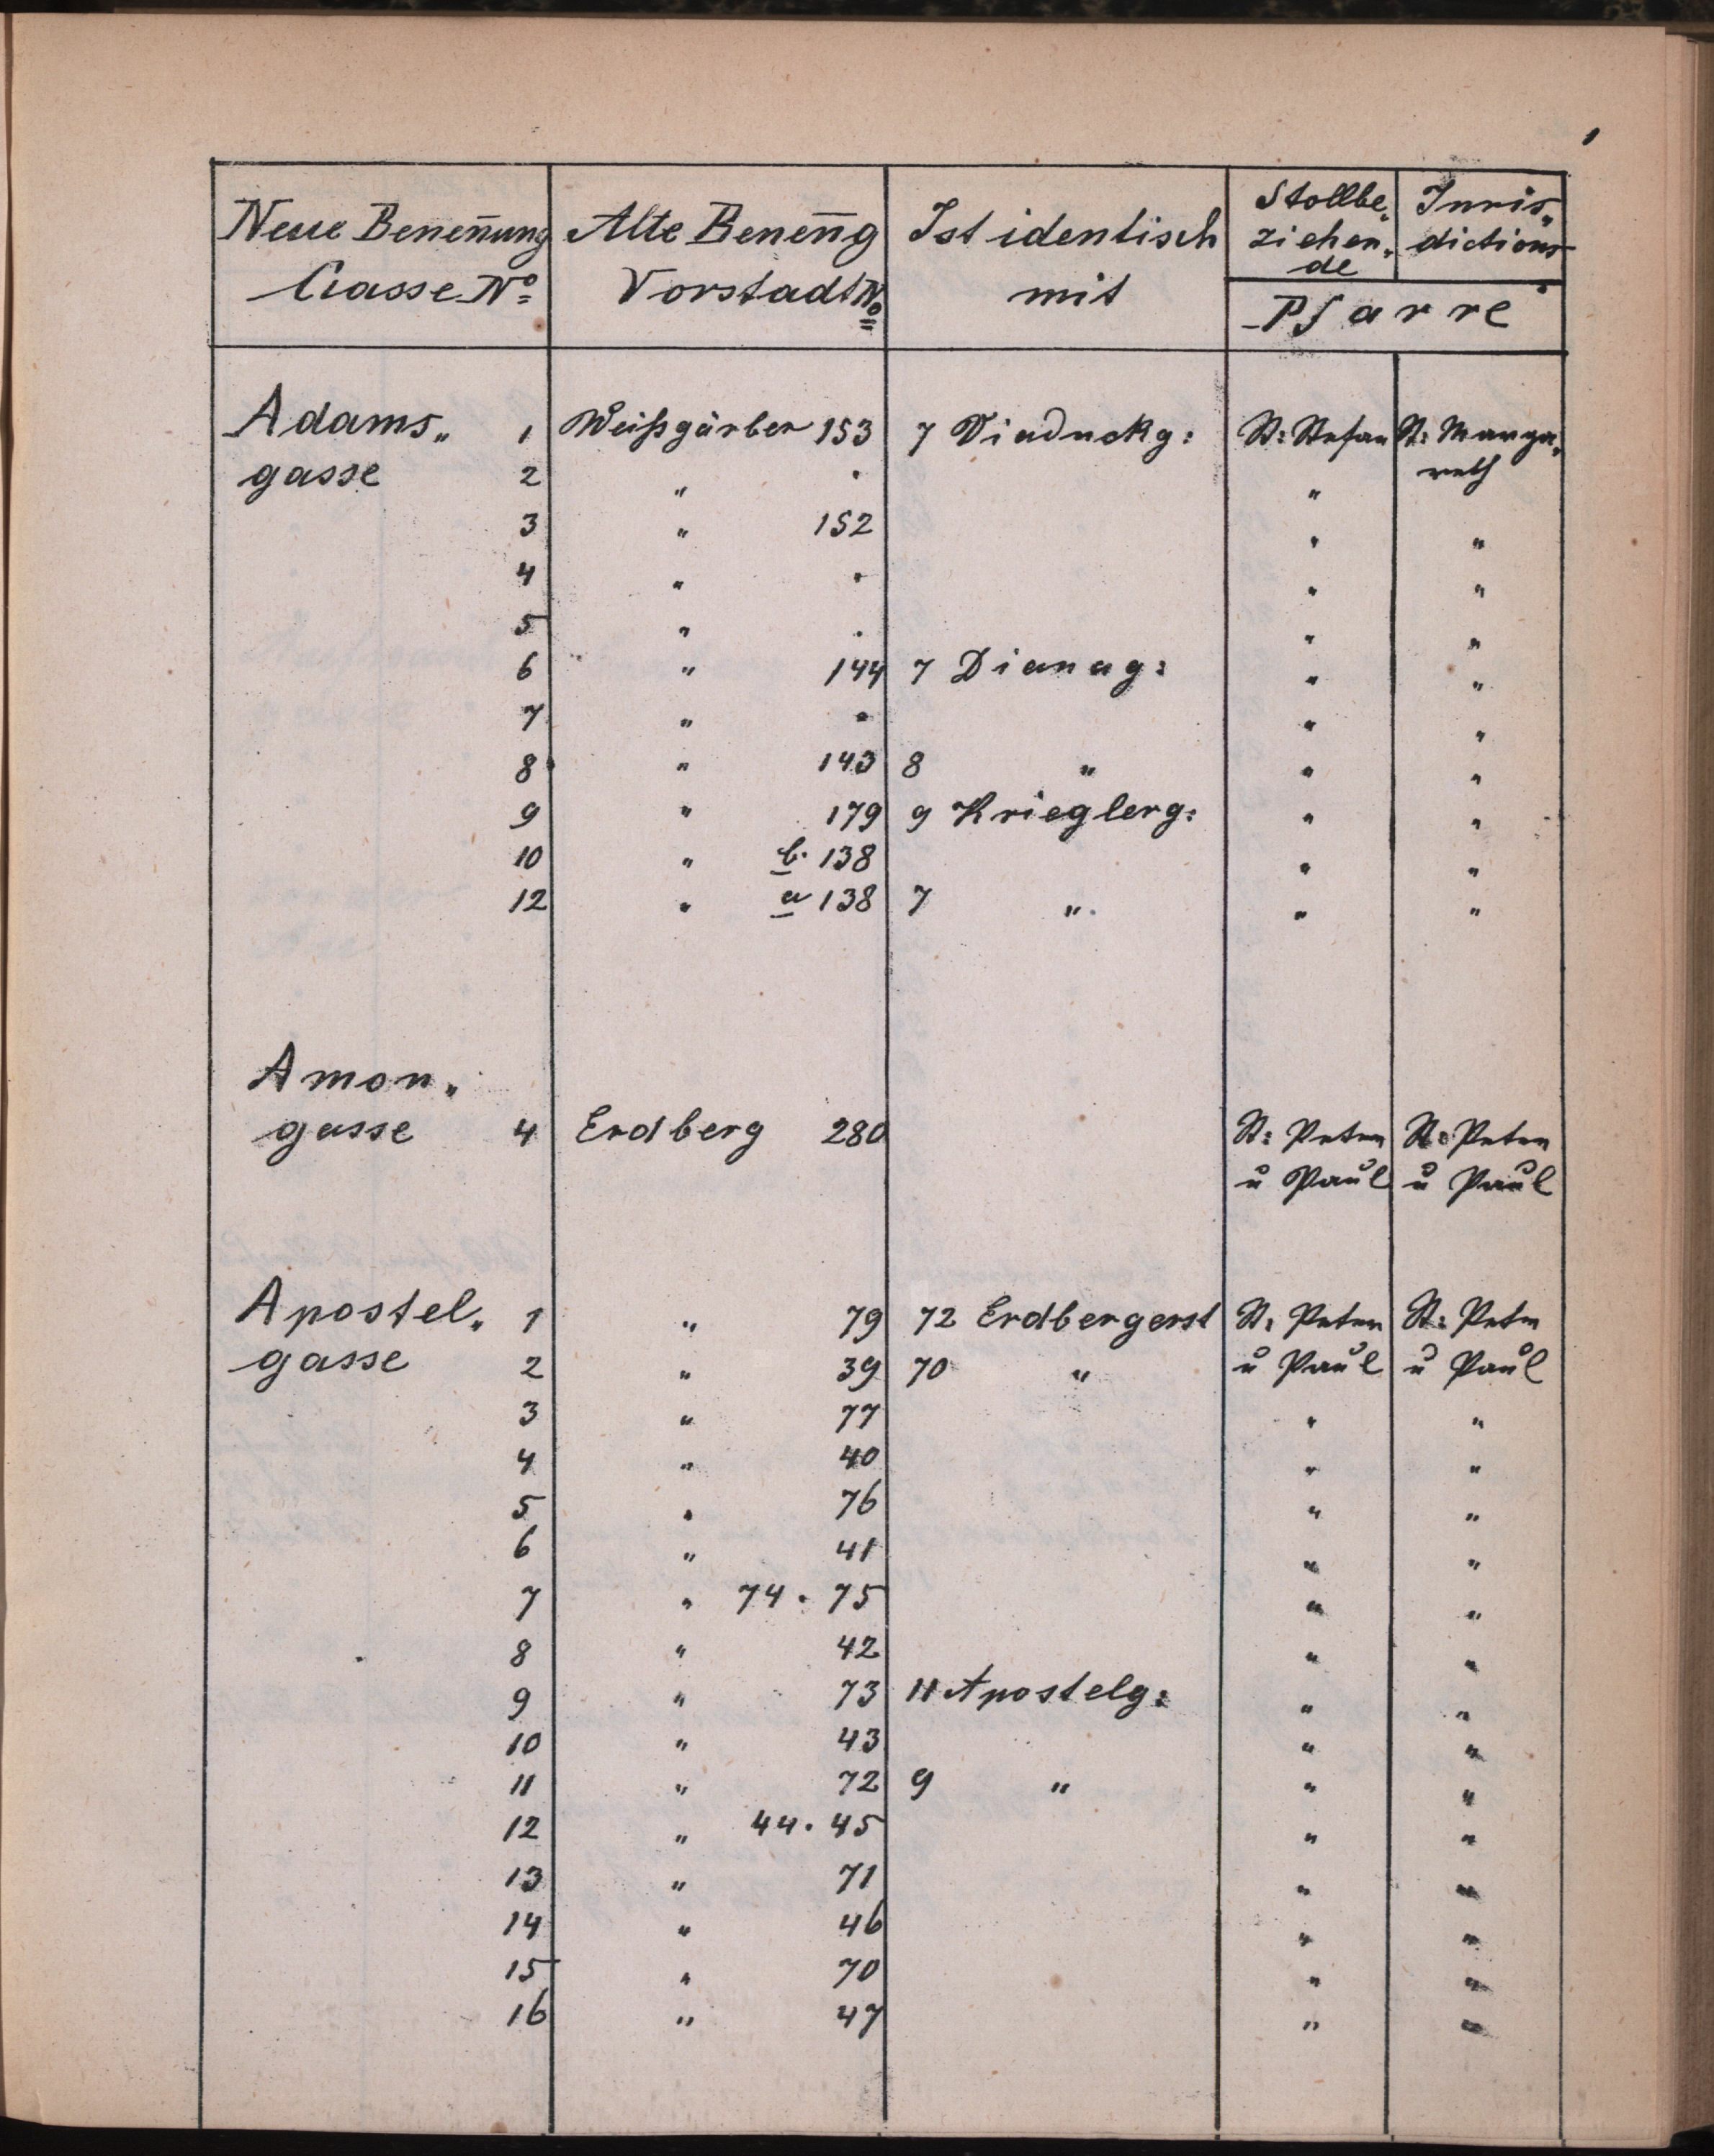 1
Neue Benen̄ung Alte Benen̄g Ist identisch Stollbe„ Juris„
Gasse No Vorstadt No mit ziehen„ dictions
de
Pfarre
Adams„ 1 Weißgärber 153 7 Viaduckg: St: Stefan St: Marga„
gasse 2 „ . „ reth
3 „ 152 „ „
4 „ . „ „
5 „ . „ „
6 „ 144 7 Dianag: „ „
7 „ . „ „
8 „ 143 8 „ „ „
9 „ 179 9 Krieglerg: „ „
10 „ b. 138 „ „
12 „ a 138 7 „ „ „
Amon„
gasse 4 Erdberg 280 St: Peter St: Peter
u Paul u Paul
Apostel„ 1 „ 79 72 Erdbergerst St: Peter St: Peter
gasse 2 „ 39 70 „ u Paul u Paul
3 „ 77 „ „
4 „ 40 „ „
5 „ 76 „ „
6 „ 41 „ „
7 „ 74. 75 „ „
8 „ 42 „ „
9 „ 73 11 Apostelg: „ „
10 „ 43 „ „
11 „ 72 9 „ „ „
12 „ 44. 45 „ „
13 „ 71 „ „
14 „ 46 „ „
15 „ 70 „ „
16 „ 47 „ „